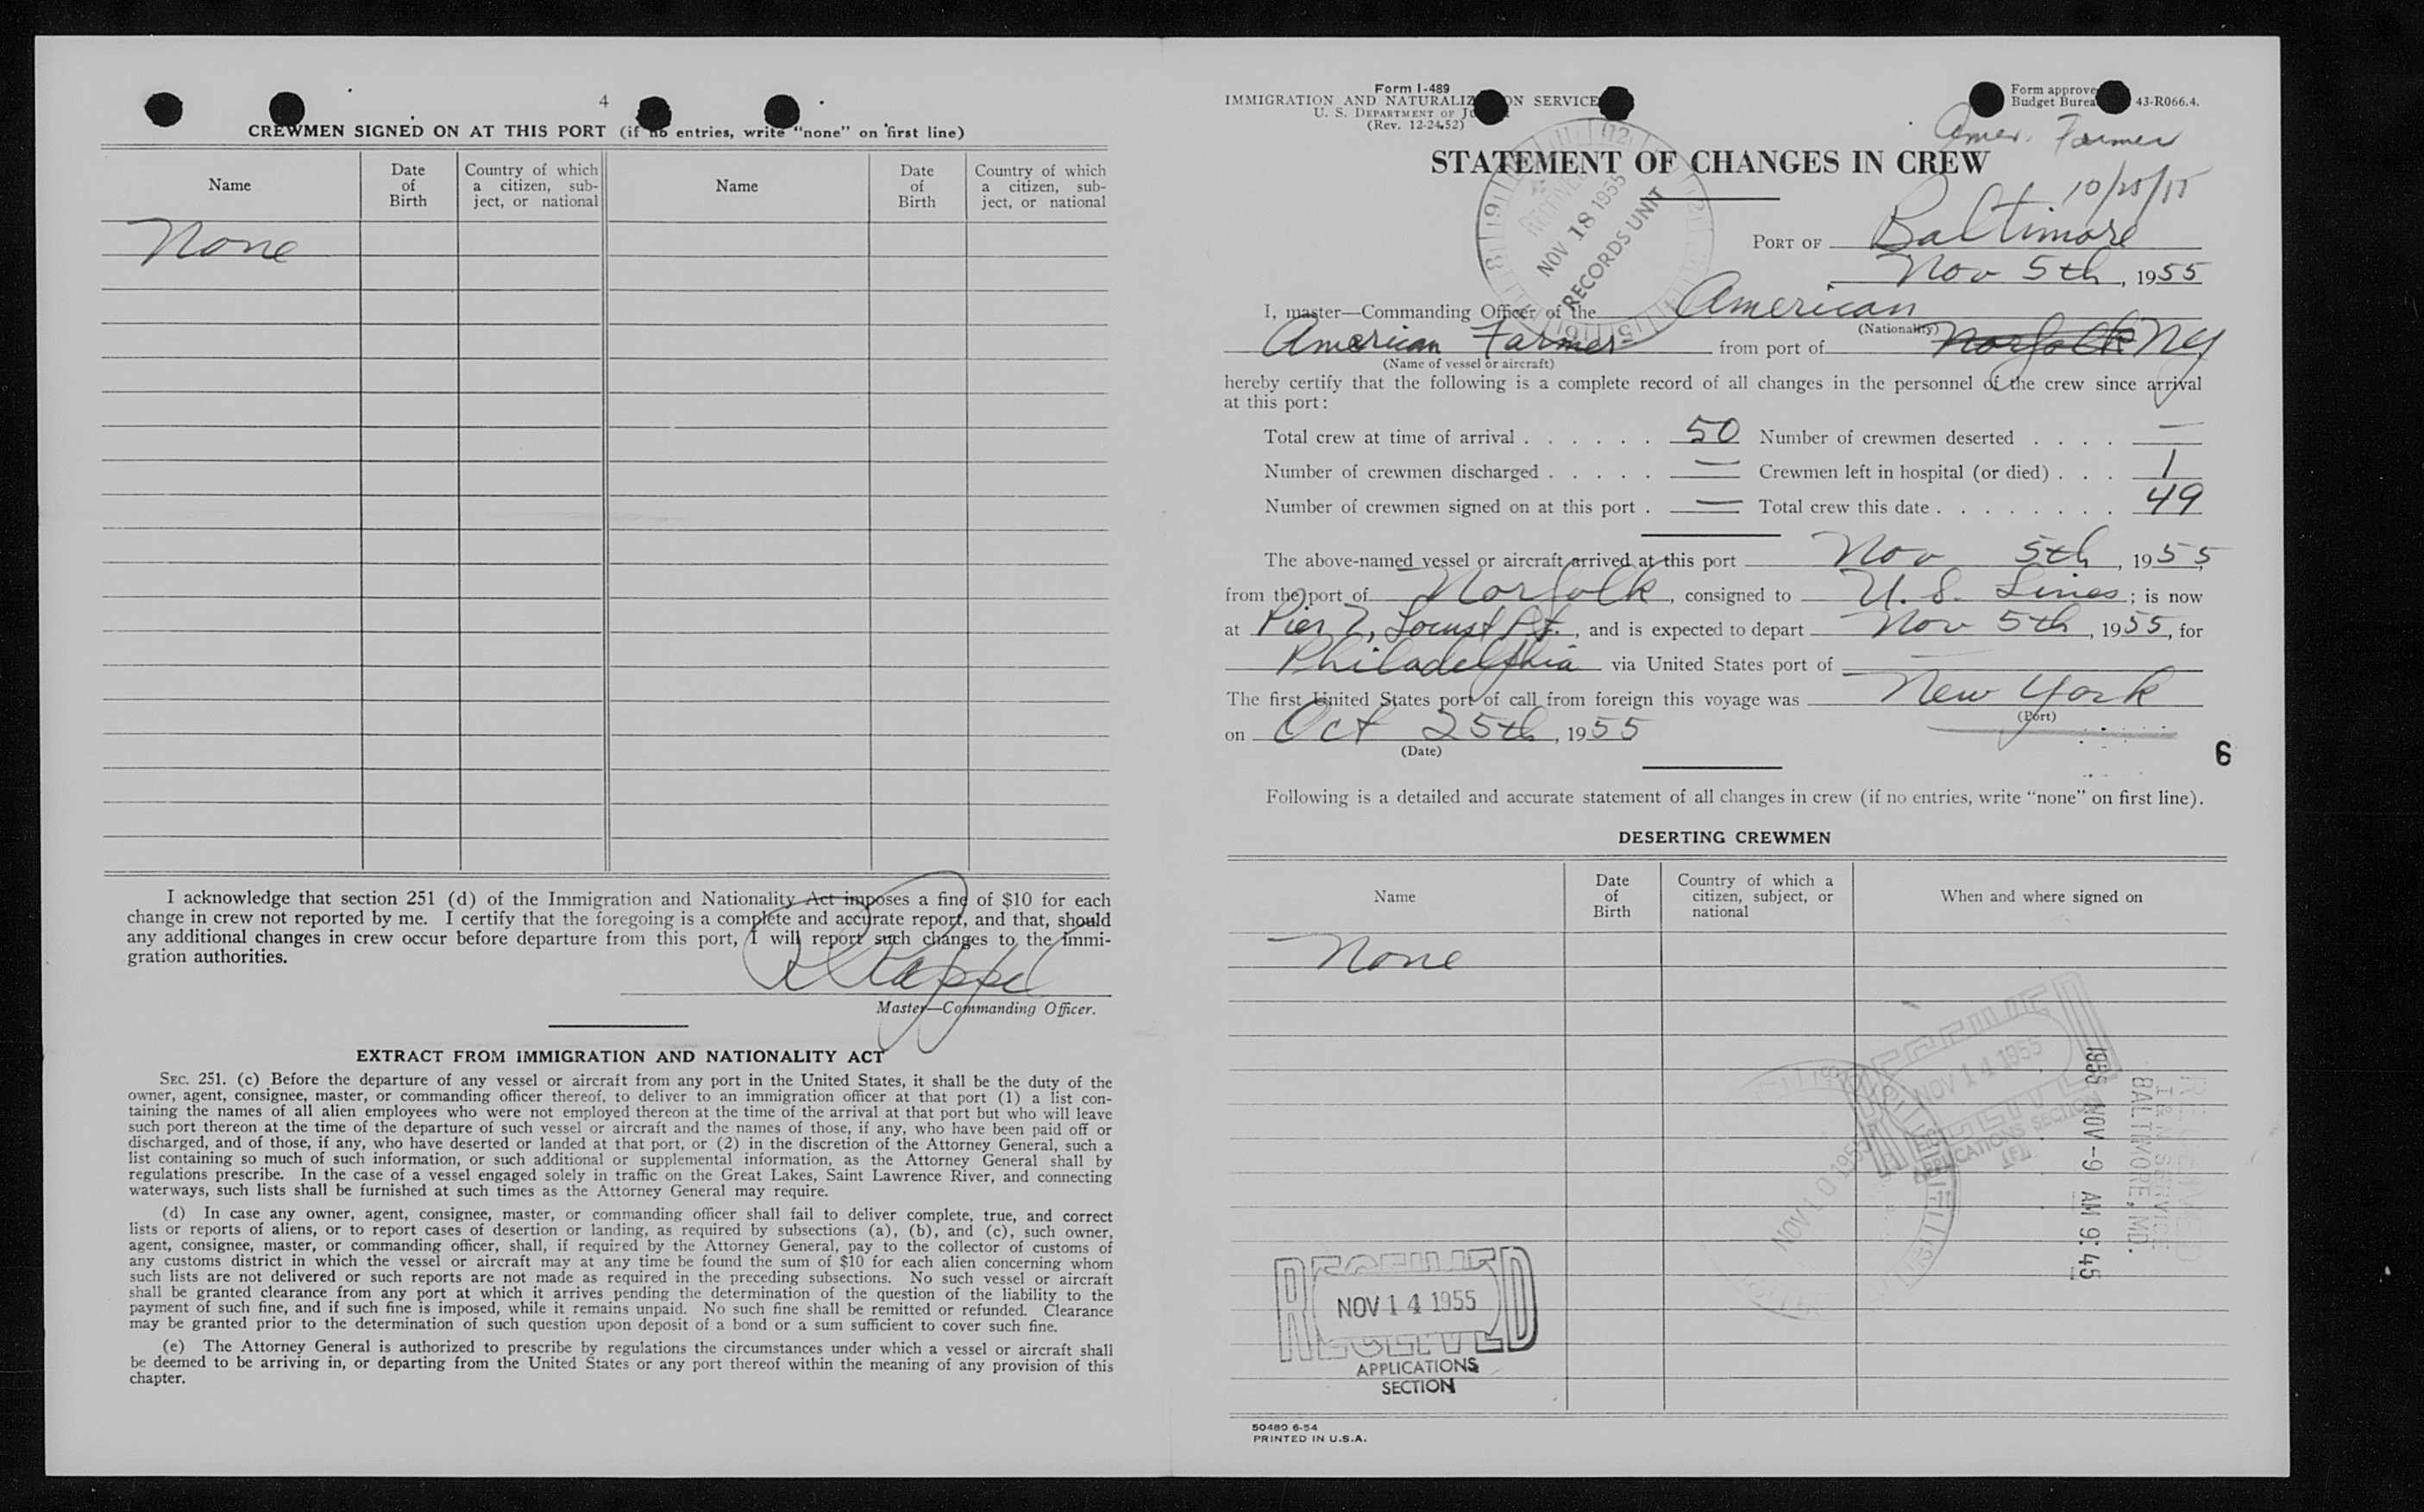 4
CREWMEN SIGNED ON AT THIS PORT (if no entries, write "none" on first line)
Name
Date of Birth
Country of which a citizen, sub-
ject, or national
Name
Date of Birth
Country of which a citizen, sub-
ject, or national
None
I acknowledge that section 251 (d) of the Immigration and Nationality Act imposes a fine of $10 for each
change in crew not reported by me. I certify that the foregoing is a complete and accurate report, and that, should
any additional changes in crew occur before departure from this port, I will report such changes to the immi-
gration authorities.
Master—Commanding Officer.
EXTRACT FROM IMMIGRATION AND NATIONALITY ACT
SEC. 251. (c) Before the departure of any vessel or aircraft from any port in the United States, it shall be the duty of the
owner, agent, consignee, master, or commanding officer thereof, to deliver to an immigration officer at that port (1) a list con-
taining the names of all alien employees who were not employed thereon at the time of the arrival at that port but who will leave
such port thereon at the time of the departure of such vessel or aircraft and the names of those, if any, who have been paid off or
discharged, and of those, if any, who have deserted or landed at that port, or (2) in the discretion of the Attorney General, such a
list containing so much of such information, or such additional or supplemental information, as the Attorney General shall by
regulations prescribe. In the case of a vessel engaged solely in traffic on the Great Lakes, Saint Lawrence River, and connecting
waterways, such lists shall be furnished at such times as the Attorney General may require.
(d) In case any owner, agent, consignee, master, or commanding officer shall fail to deliver complete, true, and correct
lists or reports of aliens, or to report cases of desertion or landing, as required by subsections (a), (b), and (c), such owner,
agent, consignee, master, or commanding officer, shall, if required by the Attorney General, pay to the collector of customs of
any customs district in which the vessel or aircraft may at any time be found the sum of $10 for each alien concerning whom
such lists are not delivered or such reports are not made as required in the preceding subsections. No such vessel or aircraft
shall be granted clearance from any port at which it arrives pending the determination of the question of the liability to the
payment of such fine, and if such fine is imposed, while it remains unpaid. No such fine shall be remitted or refunded. Clearance
may be granted prior to the determination of such question upon deposit of a bond or a sum sufficient to cover such fine.
(e) The Attorney General is authorized to prescribe by regulations the circumstances under which a vessel or aircraft shall
be deemed to be arriving in, or departing from the United States or any port thereof within the meaning of any provision of this
chapter.
Form I-489
IMMIGRATION AND NATURALIZATION SERVICE
U. S. DEPARTMENT OF
(Rev. 12-24-52)
Form approve
Budget Burea 43-R066.4.
Amer. Farmer
10/25/55
STATEMENT OF CHANGES IN CREW
RECEIVED
NOV 18 1955
RECORDS UNIT
PORT OF Baltimore
Nov 5th, 1955
I, master—Commanding Officer of the American
(Nationality)
American Farmer from port of Norfolk NY
(Name of vessel or aircraft)
hereby certify that the following is a complete record of all changes in the personnel of the crew since arrival
at this port:
Total crew at time of arrival . . . . . . 50 Number of crewmen deserted . . . . —
Number of crewmen discharged . . . . . — Crewmen left in hospital (or died) . . . 1
Number of crewmen signed on at this port . — Total crew this date . . . . . . . . 49
The above-named vessel or aircraft arrived at this port Nov 5th, 1955,
from the port of Norfolk, consigned to U. S. Lines; is now
at Pier 7, Locust Pt., and is expected to depart Nov 5th, 1955, for
Philadelphia via United States port of —
The first United States port of call from foreign this voyage was New York
(Port)
on Oct 25th, 1955
(Date)
6
Following is a detailed and accurate statement of all changes in crew (if no entries, write "none" on first line).
DESERTING CREWMEN
Name
Date of Birth
Country of which a citizen, subject, or national
When and where signed on
None
RECEIVED
NOV 14 1955
APPLICATIONS SECTION
NOV 10 1955
RECEIVED
I & N SERVICE
BALTIMORE, MD.
1955 NOV -9 AM 9:45
RECEIVED
NOV 14 1955
APPLICATIONS
SECTION
50480 6-54
PRINTED IN U.S.A.